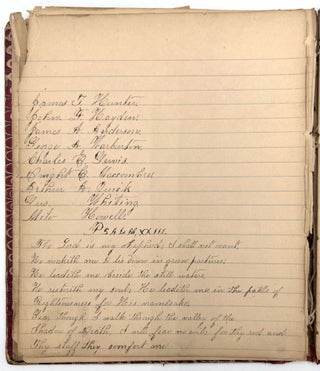 James T. Hunter,
John F. Hayden,
James A. Anderson,
George A. Warburton,
Charles E. Gervis,
Dwight E. Loccombre
Arthur A. Quick
Gus. Whiting,
Milo Howell.
Psalm XXIII.
The God is my shepherd, I shall not want,
He maketh me to lie down in green pastures,
He leadeth me beside the still waters,
He restoreth my soul, He leadeth me in the paths of
Righteousness for His namesake,
Yea, though I walk through the valley of the
Shadow of Death, I will fear no evil, for thy rod and
Thy staff they comfort me